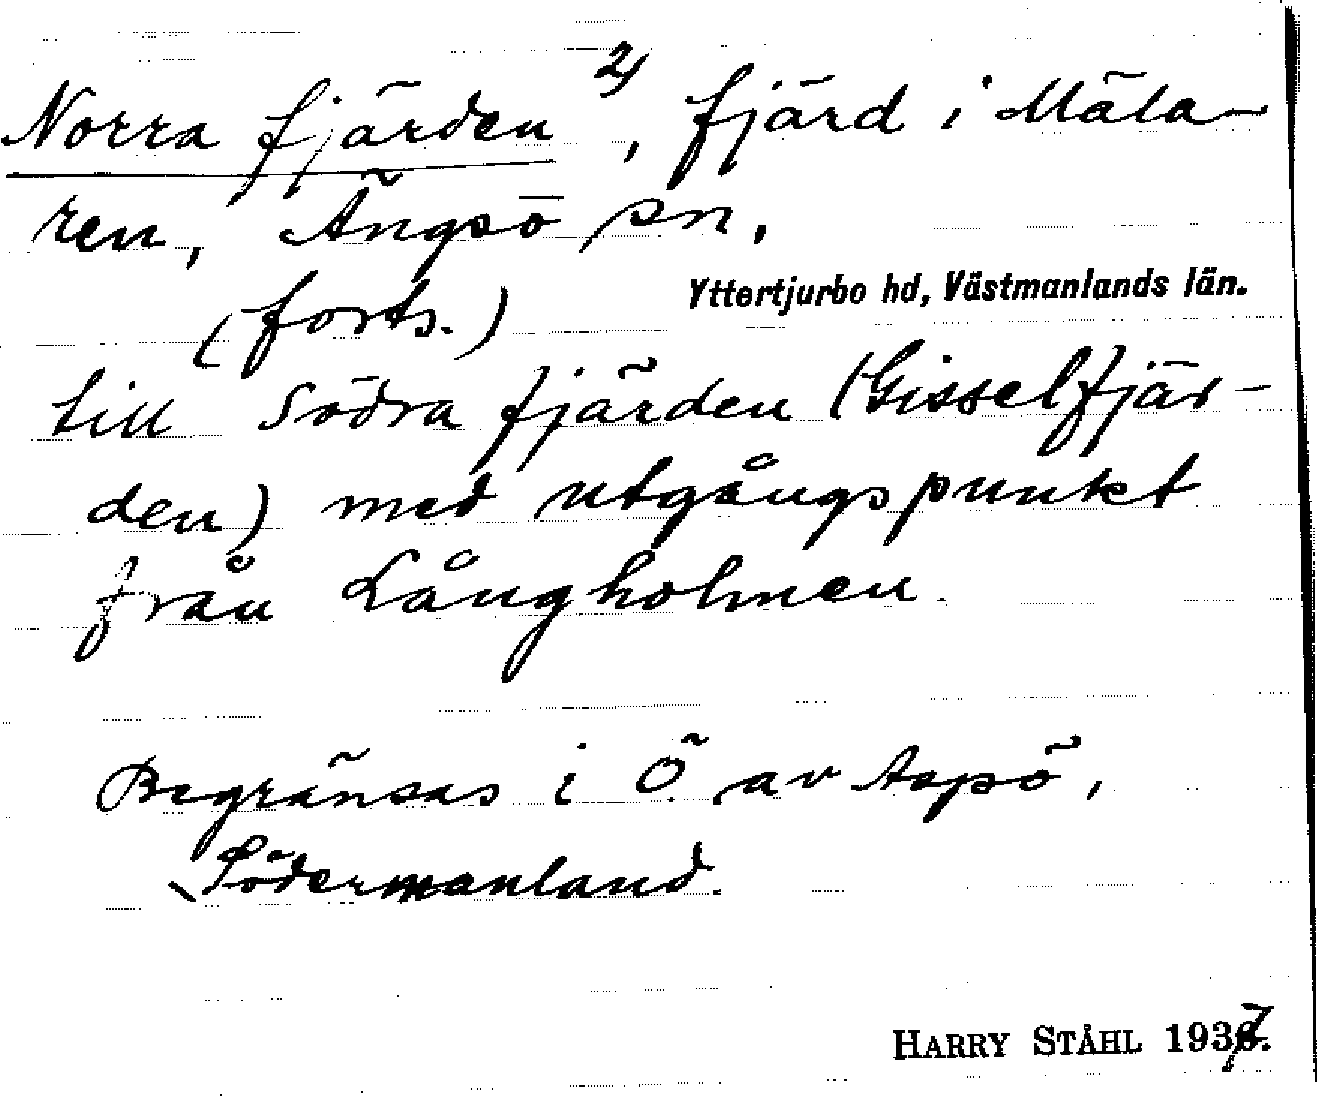 Norra fjärden 2), fjärd i Mäla-
ren, Ängsö sn,
Yttertjurbo hd, Västmanlands län.
(forts.)
till Södra fjärden (Gisselfjär-
den) med utgångspunkt
från Långholmen.
Begränsas i Ö av Aspö,
Södermanland.
HARRY STÅHL 1937.